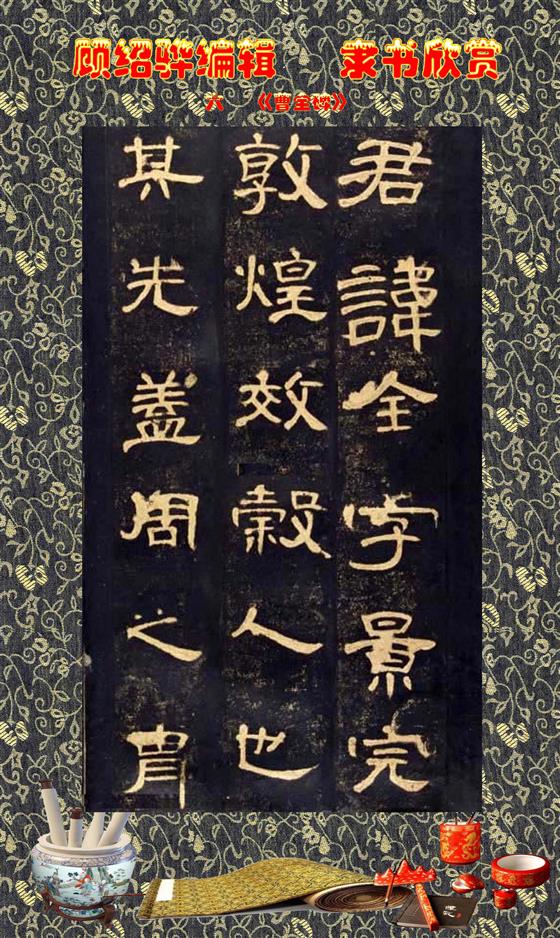 顾绍骅编辑 隶书欣赏
六 《曹全碑》
君諱全字景完
敦煌效穀人也
其先蓋周之胄